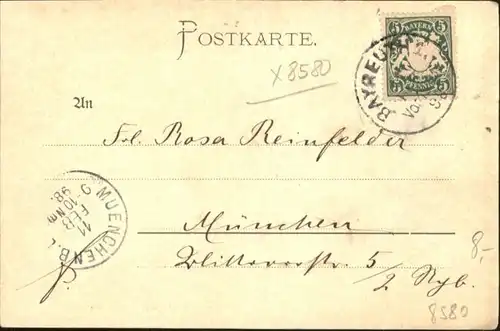 POSTKARTE.
BAYERN
5 5
PFENNIG
BAYREUTH
Vor
98
X 8580
An
Frl. Rosa Reinfelder
MUENCHEN B.
11
FEB
9-10 Nm
98.
München
5
2
8,-
8580